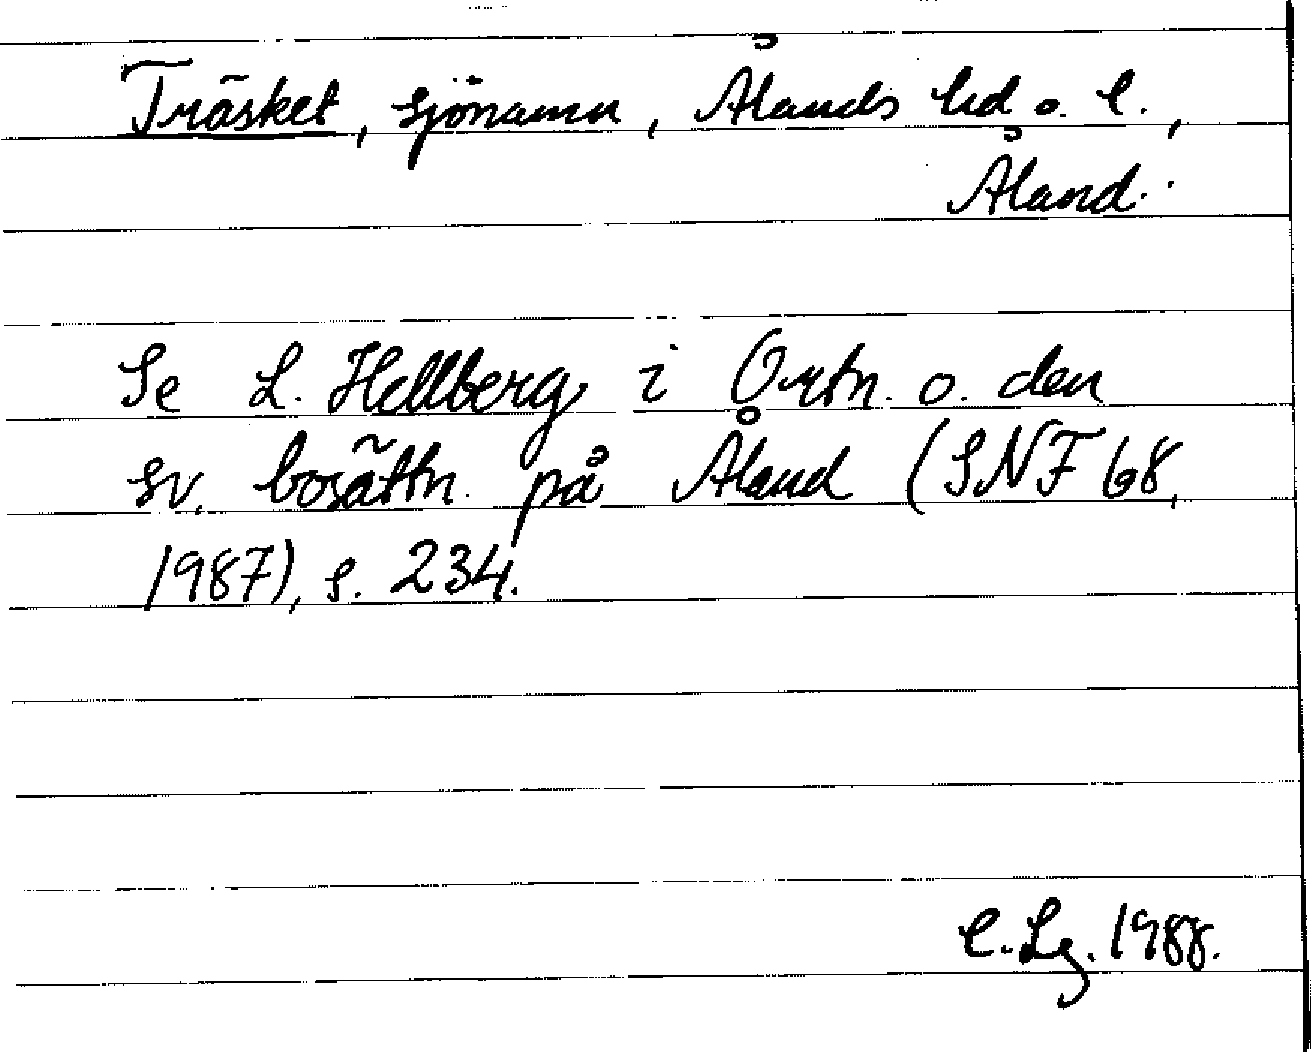 Träsket, sjönamn, Ålands hd o. l.,
Åland.
Se L. Hellberg i Ortn. o. den
sv. bosättn. på Åland (SNF 68,
1987), s. 234.
C. Lg. 1988.